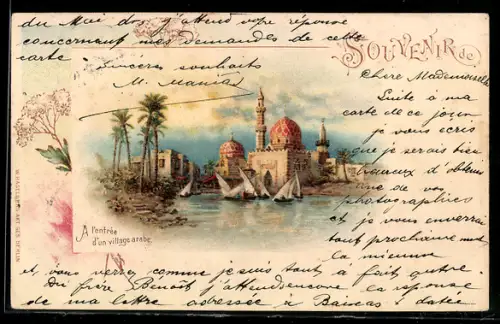 du Mai dos j'attend votre réponse
concernent mes demandes de cette
carte
Sincères souhaits
M.
SOUVENIR de
Chère Mademoiselle
Suite à ma
carte de ce jour
je vous écris
que je serais bien
heureux d'obtenir
une de vos
photographies
et je vous enverrai
tout prochainement
la mienne
A l'entrée
d'un village arabe.
et vous verrez comme je suis tout à fait autre.
du frère Benoît j'attends encore la réponse
de ma lettre adressée à datée